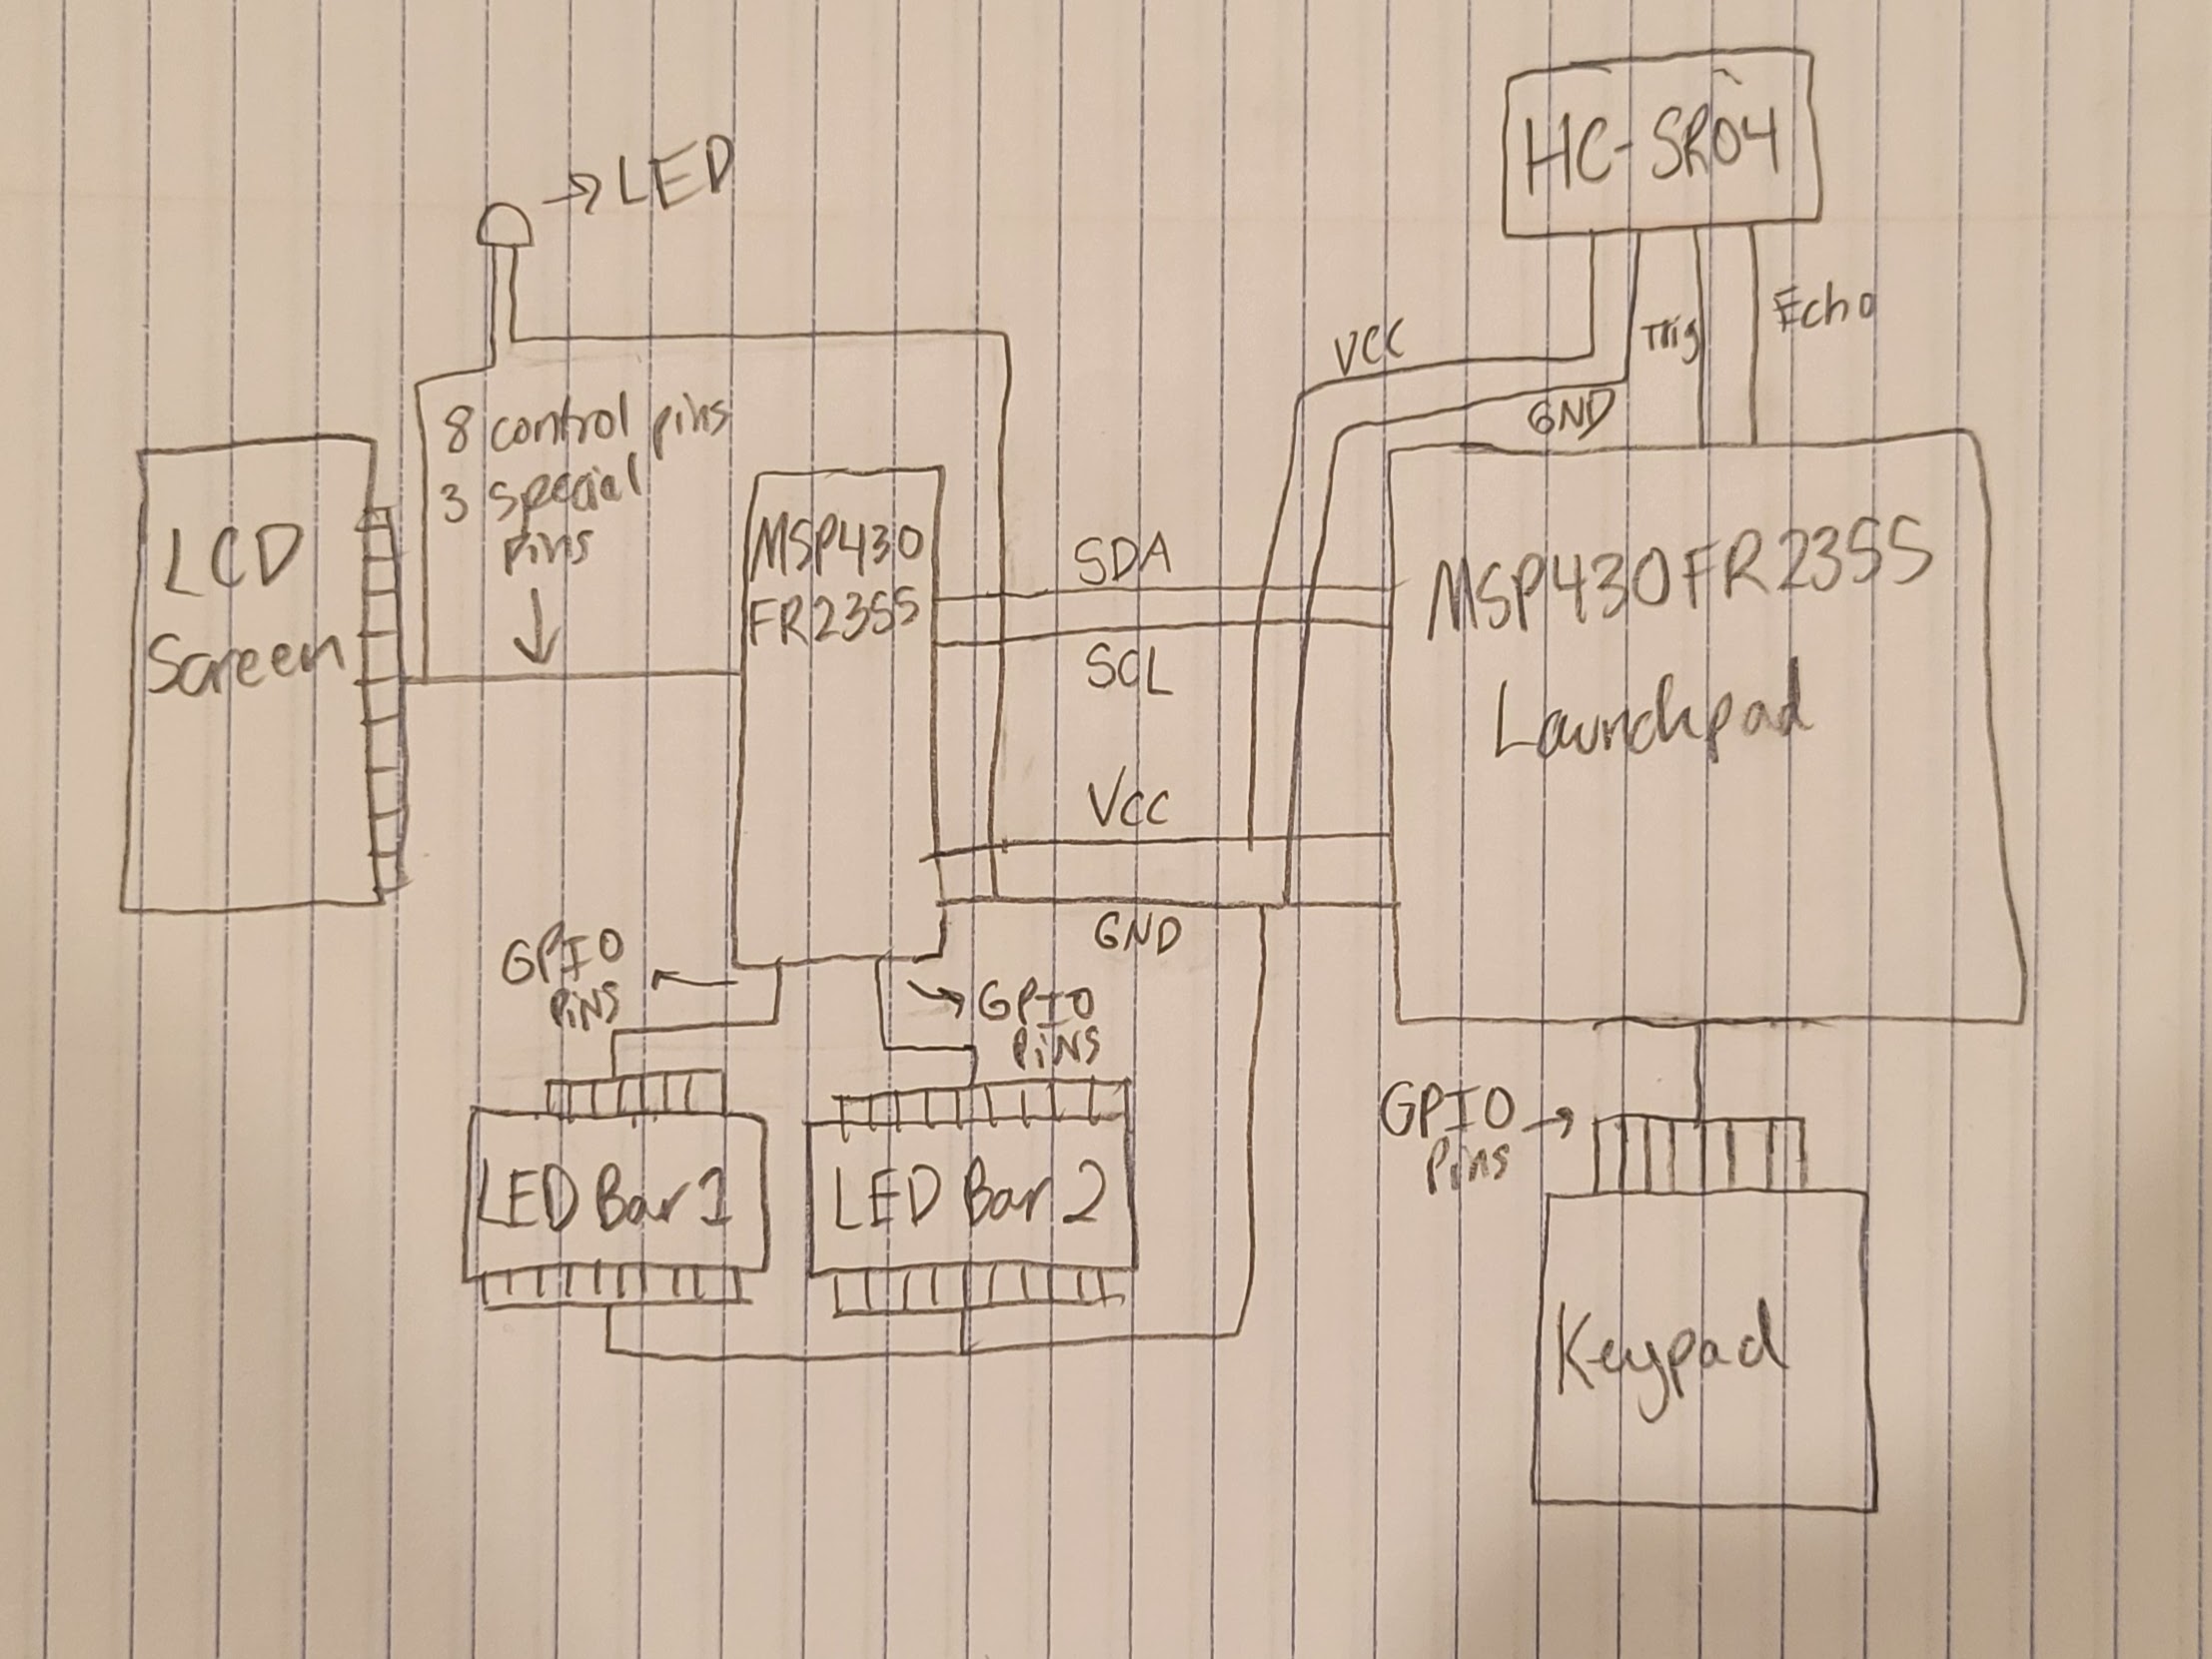 HC-SR04
LED
Echo
Trig
VCC
GND
8 control pins
3 special
pins
LCD
Screen
MSP430
FR2355
SDA
SCL
MSP430FR2355
Launchpad
VCC
GND
GPIO
PiNS
GPIO
PiNS
GPIO
Pins
LED Bar 1
LED Bar 2
Keypad